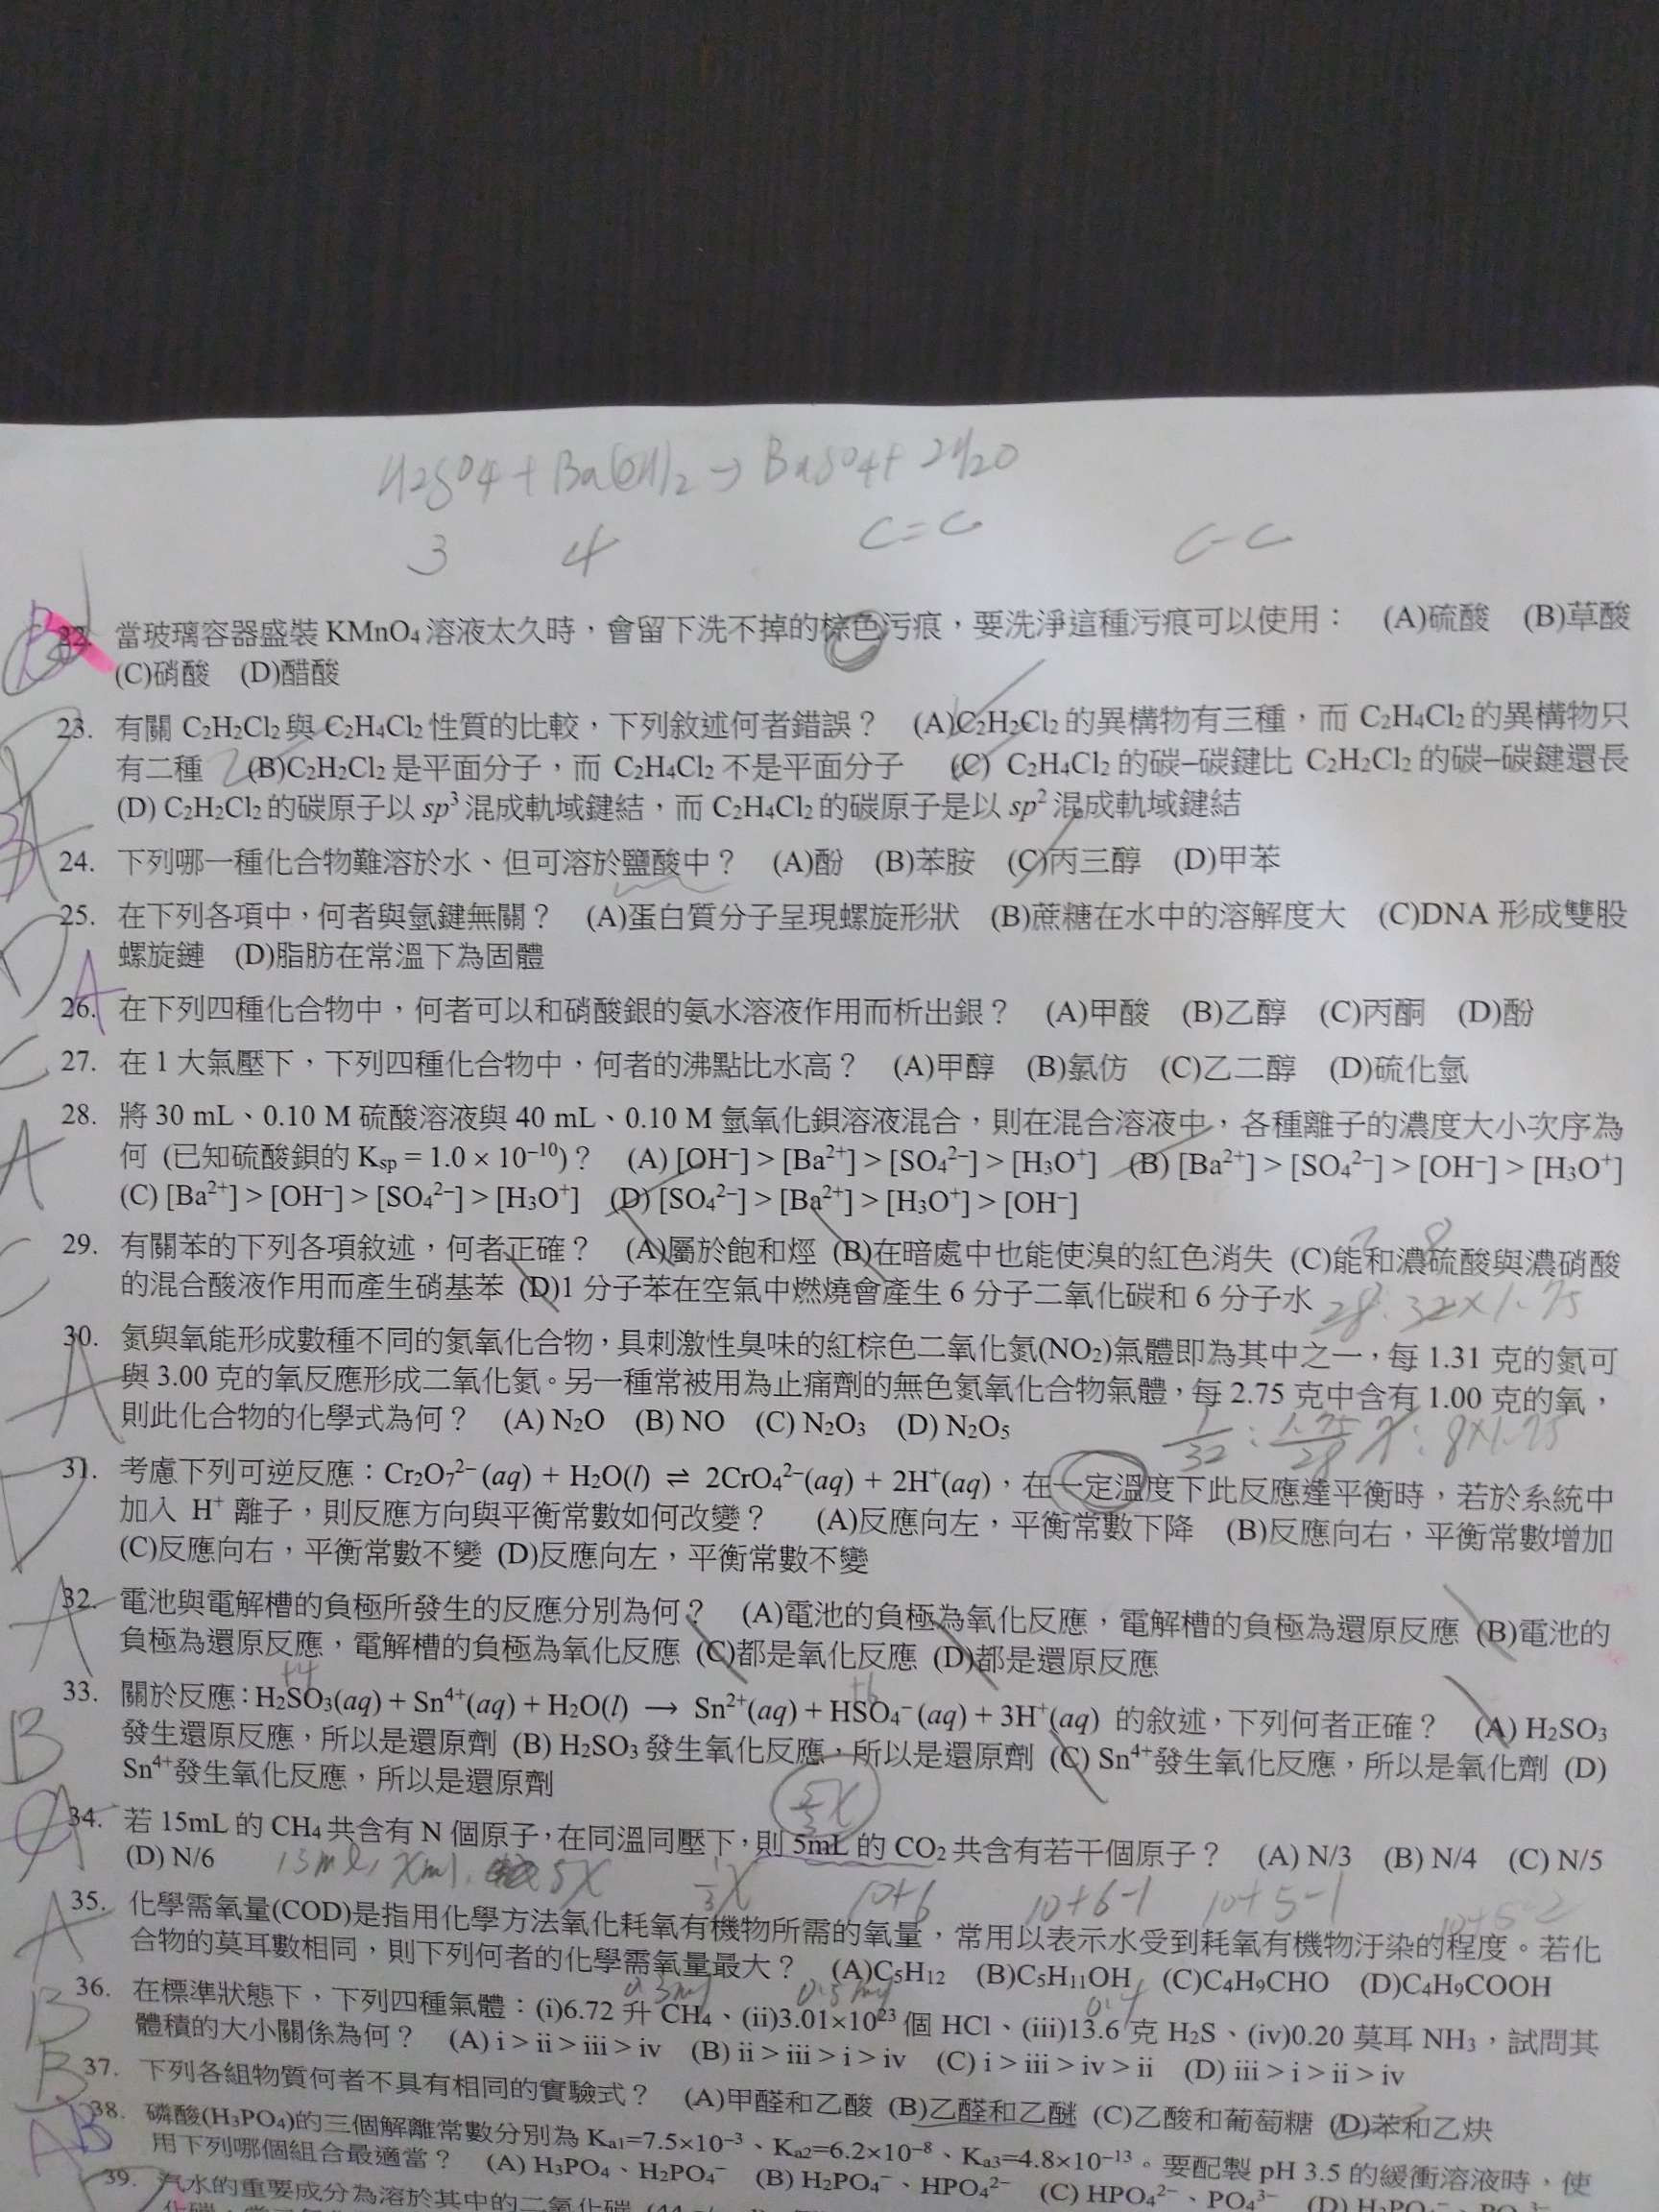 H2SO4 + Ba(OH)2 → BaSO4 + 2H2O
3 4 C=C C-C
B 22. 當玻璃容器盛裝 KMnO₄ 溶液太久時，會留下洗不掉的棕色污痕，要洗淨這種污痕可以使用： (A)硫酸 (B)草酸
(C)硝酸 (D)醋酸
D 23. 有關 C₂H₂Cl₂ 與 C₂H₄Cl₂ 性質的比較，下列敘述何者錯誤？ (A)C₂H₂Cl₂ 的異構物有三種，而 C₂H₄Cl₂ 的異構物只
有二種 (B)C₂H₂Cl₂ 是平面分子，而 C₂H₄Cl₂ 不是平面分子 (C) C₂H₄Cl₂ 的碳–碳鍵比 C₂H₂Cl₂ 的碳–碳鍵還長
(D) C₂H₂Cl₂ 的碳原子以 sp³ 混成軌域鍵結，而 C₂H₄Cl₂ 的碳原子是以 sp² 混成軌域鍵結
24. 下列哪一種化合物難溶於水、但可溶於鹽酸中？ (A)酚 (B)苯胺 (C)丙三醇 (D)甲苯
D 25. 在下列各項中，何者與氫鍵無關？ (A)蛋白質分子呈現螺旋形狀 (B)蔗糖在水中的溶解度大 (C)DNA 形成雙股
螺旋鏈 (D)脂肪在常溫下為固體
A 26. 在下列四種化合物中，何者可以和硝酸銀的氨水溶液作用而析出銀？ (A)甲酸 (B)乙醇 (C)丙酮 (D)酚
C 27. 在 1 大氣壓下，下列四種化合物中，何者的沸點比水高？ (A)甲醇 (B)氯仿 (C)乙二醇 (D)硫化氫
A 28. 將 30 mL、0.10 M 硫酸溶液與 40 mL、0.10 M 氫氧化鋇溶液混合，則在混合溶液中，各種離子的濃度大小次序為
何 (已知硫酸鋇的 Ksp = 1.0 × 10⁻¹⁰)？ (A) [OH⁻] > [Ba²⁺] > [SO₄²⁻] > [H₃O⁺] (B) [Ba²⁺] > [SO₄²⁻] > [OH⁻] > [H₃O⁺]
(C) [Ba²⁺] > [OH⁻] > [SO₄²⁻] > [H₃O⁺] (D) [SO₄²⁻] > [Ba²⁺] > [H₃O⁺] > [OH⁻]
C 29. 有關苯的下列各項敘述，何者正確？ (A)屬於飽和烴 (B)在暗處中也能使溴的紅色消失 (C)能和濃硫酸與濃硝酸
的混合酸液作用而產生硝基苯 (D)1 分子苯在空氣中燃燒會產生 6 分子二氧化碳和 6 分子水 28:32×1.75
A 30. 氮與氧能形成數種不同的氮氧化合物，具刺激性臭味的紅棕色二氧化氮(NO₂)氣體即為其中之一，每 1.31 克的氮可
與 3.00 克的氧反應形成二氧化氮。另一種常被用為止痛劑的無色氮氧化合物氣體，每 2.75 克中含有 1.00 克的氧，
則此化合物的化學式為何？ (A) N₂O (B) NO (C) N₂O₃ (D) N₂O₅
1/32 : 1.75/28 7: 8×1.75
D 31. 考慮下列可逆反應：Cr₂O₇²⁻ (aq) + H₂O(l) ⇌ 2CrO₄²⁻(aq) + 2H⁺(aq)，在一定溫度下此反應達平衡時，若於系統中
加入 H⁺ 離子，則反應方向與平衡常數如何改變？ (A)反應向左，平衡常數下降 (B)反應向右，平衡常數增加
(C)反應向右，平衡常數不變 (D)反應向左，平衡常數不變
A 32. 電池與電解槽的負極所發生的反應分別為何？ (A)電池的負極為氧化反應，電解槽的負極為還原反應 (B)電池的
負極為還原反應，電解槽的負極為氧化反應 (C)都是氧化反應 (D)都是還原反應
+4 +6
B 33. 關於反應：H₂SO₃(aq) + Sn⁴⁺(aq) + H₂O(l) → Sn²⁺(aq) + HSO₄⁻ (aq) + 3H⁺(aq) 的敘述，下列何者正確？ (A) H₂SO₃
發生還原反應，所以是還原劑 (B) H₂SO₃ 發生氧化反應，所以是還原劑 (C) Sn⁴⁺發生氧化反應，所以是氧化劑 (D)
Sn⁴⁺發生氧化反應，所以是還原劑
A 34. 若 15mL 的 CH₄ 共含有 N 個原子，在同溫同壓下，則 5mL 的 CO₂ 共含有若干個原子？ (A) N/3 (B) N/4 (C) N/5
(D) N/6 15ml, xml, 5x 1/3x 10+6 10+6-1 10+5-1 10+5-2
A 35. 化學需氧量(COD)是指用化學方法氧化耗氧有機物所需的氧量，常用以表示水受到耗氧有機物汙染的程度。若化
合物的莫耳數相同，則下列何者的化學需氧量最大？ (A)C₅H₁₂ (B)C₅H₁₁OH (C)C₄H₉CHO (D)C₄H₉COOH
0.3mol 0.5mol 0.4
B 36. 在標準狀態下，下列四種氣體：(i)6.72 升 CH₄、(ii)3.01×10²³ 個 HCl、(iii)13.6 克 H₂S、(iv)0.20 莫耳 NH₃，試問其
體積的大小關係為何？ (A) i > ii > iii > iv (B) ii > iii > i > iv (C) i > iii > iv > ii (D) iii > i > ii > iv
B 37. 下列各組物質何者不具有相同的實驗式？ (A)甲醛和乙酸 (B)乙醛和乙醚 (C)乙酸和葡萄糖 (D)苯和乙炔
AB 38. 磷酸(H₃PO₄)的三個解離常數分別為 Ka1=7.5×10⁻³、Ka2=6.2×10⁻⁸、Ka3=4.8×10⁻¹³。要配製 pH 3.5 的緩衝溶液時，使
用下列哪個組合最適當？ (A) H₃PO₄、H₂PO₄⁻ (B) H₂PO₄⁻、HPO₄²⁻ (C) HPO₄²⁻、PO₄³⁻ (D) H₂PO₄⁻、PO₄³⁻
39. 汽水的重要成分為溶於其中的二氧化碳